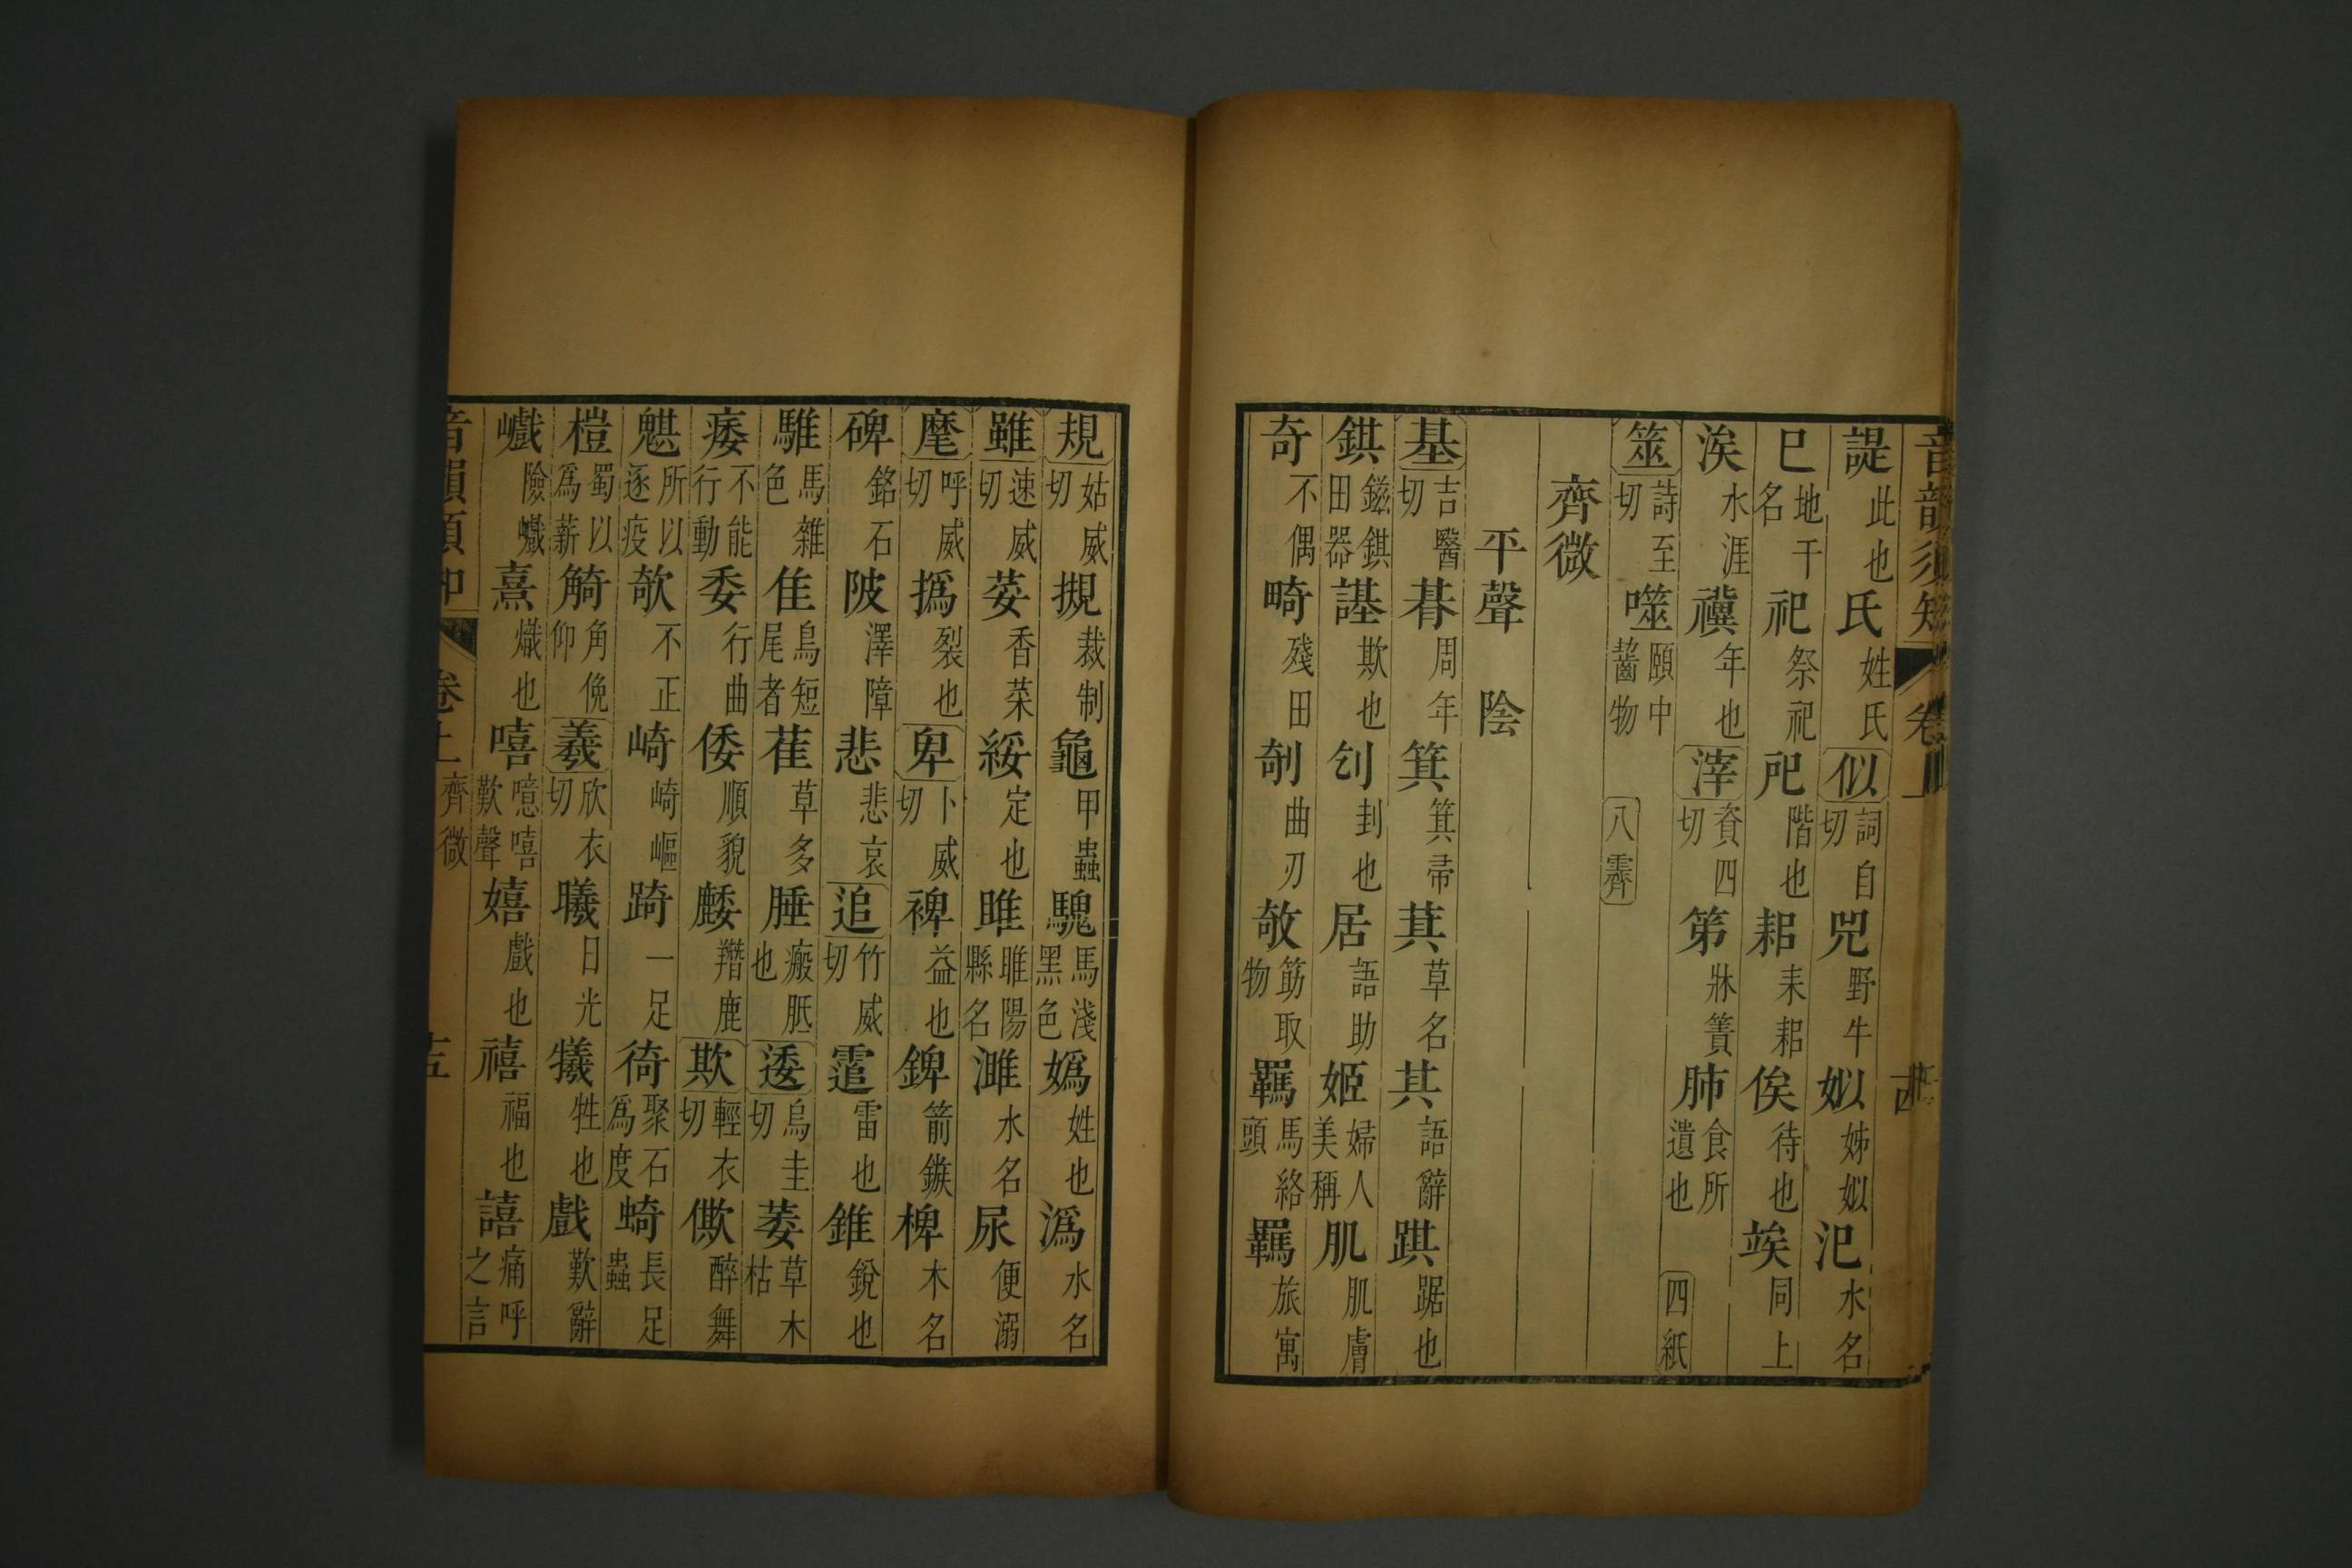 音韻須知 卷上
諟此也氏姓氏似詞自切兕野牛姒姊姒汜水名
巳地干名祀祭祀戺階也耜耒耜俟待也竢同上
涘水涯禩年也滓資四切笫牀簀胏食所遺也 四紙
筮詩至切噬頤中齧物 八霽
齊微
平聲 陰
基吉醫切朞周年箕箕帚萁草名其語辭踑踞也
錤鎡錤田器諆欺也刉刲也居語助姬婦人美稱肌肌膚
奇不偶畸殘田剞曲刃攲筯取物羈馬絡頭羇旅寓
規姑威切摫裁制龜甲蟲騩馬淺黑色嬀姓也潙水名
雖速威切荽香菜綏定也睢睢陽縣名濉水名尿便溺
麾呼威切撝裂也卑卜威切裨益也錍箭鏃椑木名
碑銘石陂澤障悲悲哀追竹威切䨨雷也錐銳也
騅馬雜色隹鳥短尾者萑草多腄瘢胝也逶烏圭切萎草木枯
痿不能行動委行曲倭順貌䴧羺鹿欺輕衣切僛醉舞
魌所以逐疫欹不正崎崎嶇踦一足徛聚石為度䗁長足蟲
榿蜀以爲薪觭角俛仰羲欣衣切曦日光犧牲也戲歎辭
巇險巇熹熾也嘻噫嘻歎聲嬉戲也禧福也譆痛呼之言
卷上 齊微